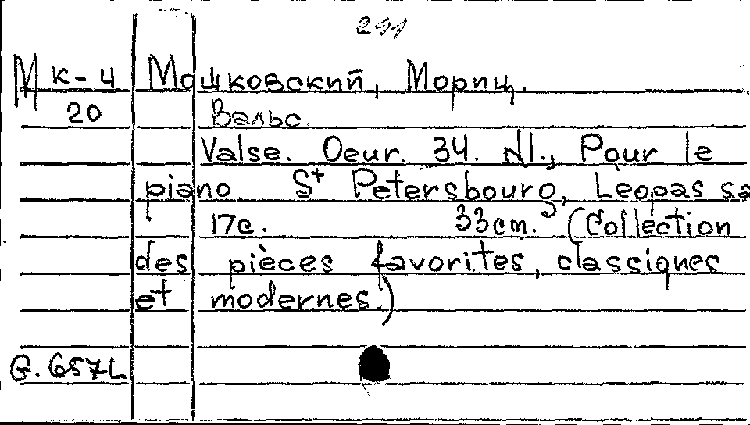 291
М к-4 Мошковский, Мориц.
20 Вальс.
Valse. Oeur. 34. N1., Pour le
piano St Petersbourg, Leopas sa
17c. 33cm. (Collection
des pièces favorites, classiques
et modernes.)
G.657L